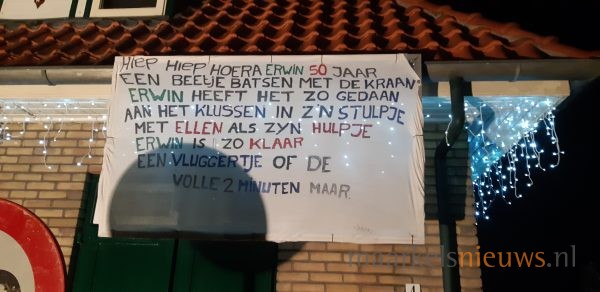 HIEP HIEP HOERA ERWIN 50 JAAR
EEN BEETJE BATSEN MET DE KRAAN
ERWIN HEEFT HET ZO GEDAAN
AAN HET KLUSSEN IN Z'N STULPJE
MET ELLEN ALS ZYN HULPJE
ERWIN IS ZO KLAAR
EEN VLUGGERTJE OF DE
VOLLE 2 MINUTEN MAAR.
nieuws.nl